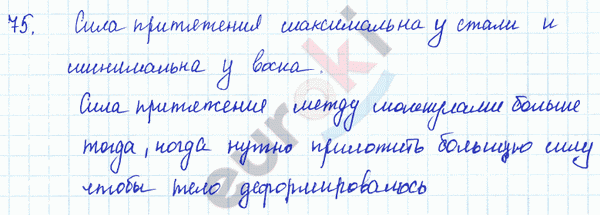 75. Сила притяжения максимальна у стали и
минимальна у воска.
Сила притяжения между молекулами больше
тогда, когда нужно приложить большую силу
чтобы тело деформировалось
euroki